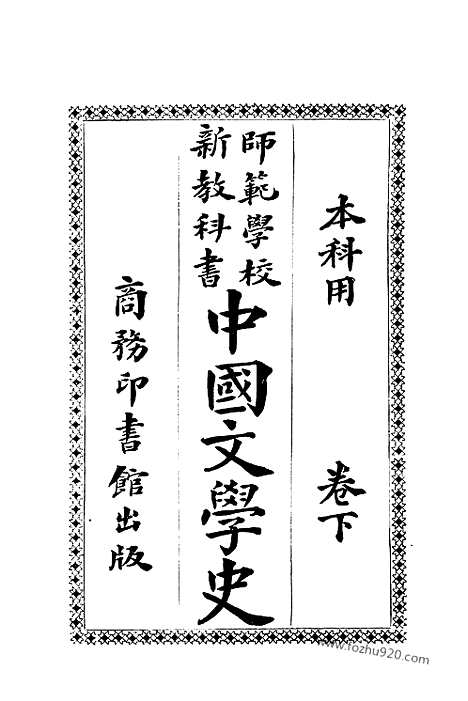 本科用　卷下
師範學校
新教科書
中國文學史
商務印書館出版
www.fozhu920.com